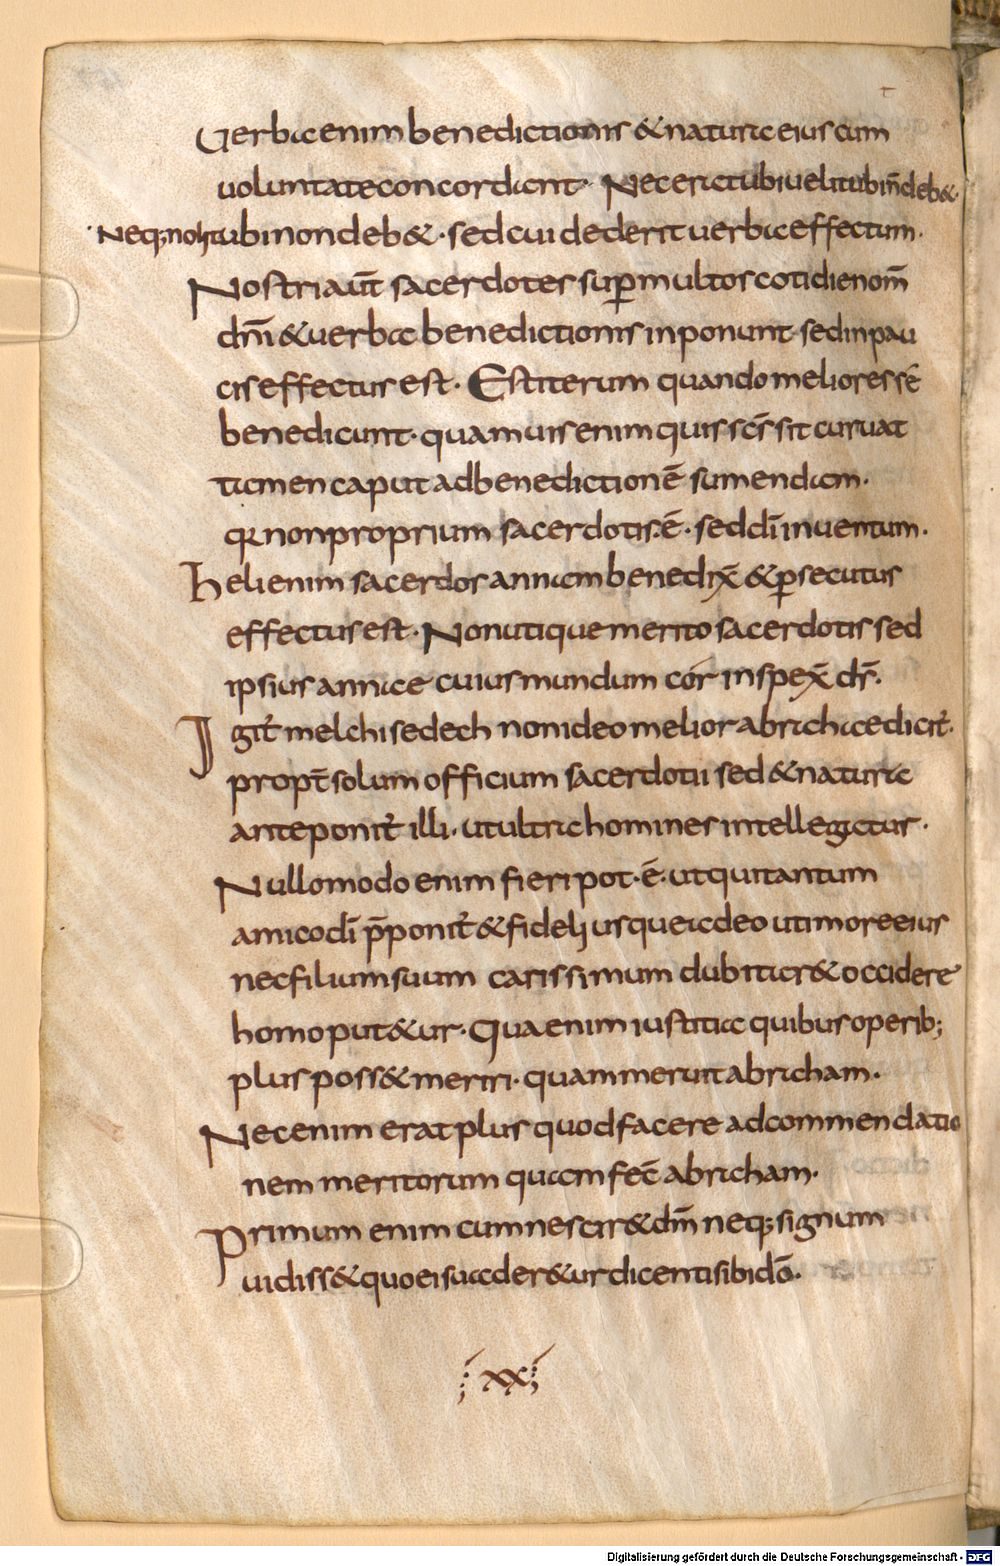 Uerba enim benedictionis & natura eius cum
uoluntate concordant· Nec erit ubi uelit ubi n̄ deb&·
Neq; nolit ubi non deb&· sed cui dederit uerba effectum·
Nostri aut̄ sacerdotes sup̄ multos cotidie nom̄
dn̄i & uerba benedictionis inponunt sed in pau
cis effectus est· Est iterum quando meliores se
benedicunt· quamuis enim quis sc̄s sit curuat
tamen caput ad benedictionē sumendam·
qr non proprium sacerdotis ē· sed dī inuentum·
Heli enim sacerdos annam benedix̄ & p̄secutus
effectus est· Non utique merito sacerdotis sed
ipsius annae cuius mundum cor inspex̄ ds̄·
Igit̄ melchisedech non ideo melior abrahae dicit̄·
propt̄ solum officium sacerdotii sed & natura
anteponit̄ illi· ut ultra homines intellegatur·
Nullo modo enim fieri pot·ē· ut qui tantum
amico dī p̄ponit̄ & fideli usque adeo ut imore eius
nec filium suum carissimum dubitar& occidere
homo put&ur· Qua enim iustitia quibus operib;
plus poss& meriri· quam meruit abraham·
Nec enim erat plus quod facere ad commendatio
nem meritorum quam fec̄ abraham·
Primum enim cum nescir& dm̄ neq; signum
uidiss& quo ei sua der&ur dicenti sibi dō·
xx
Digitalisierung gefördert durch die Deutsche Forschungsgemeinschaft - DFG